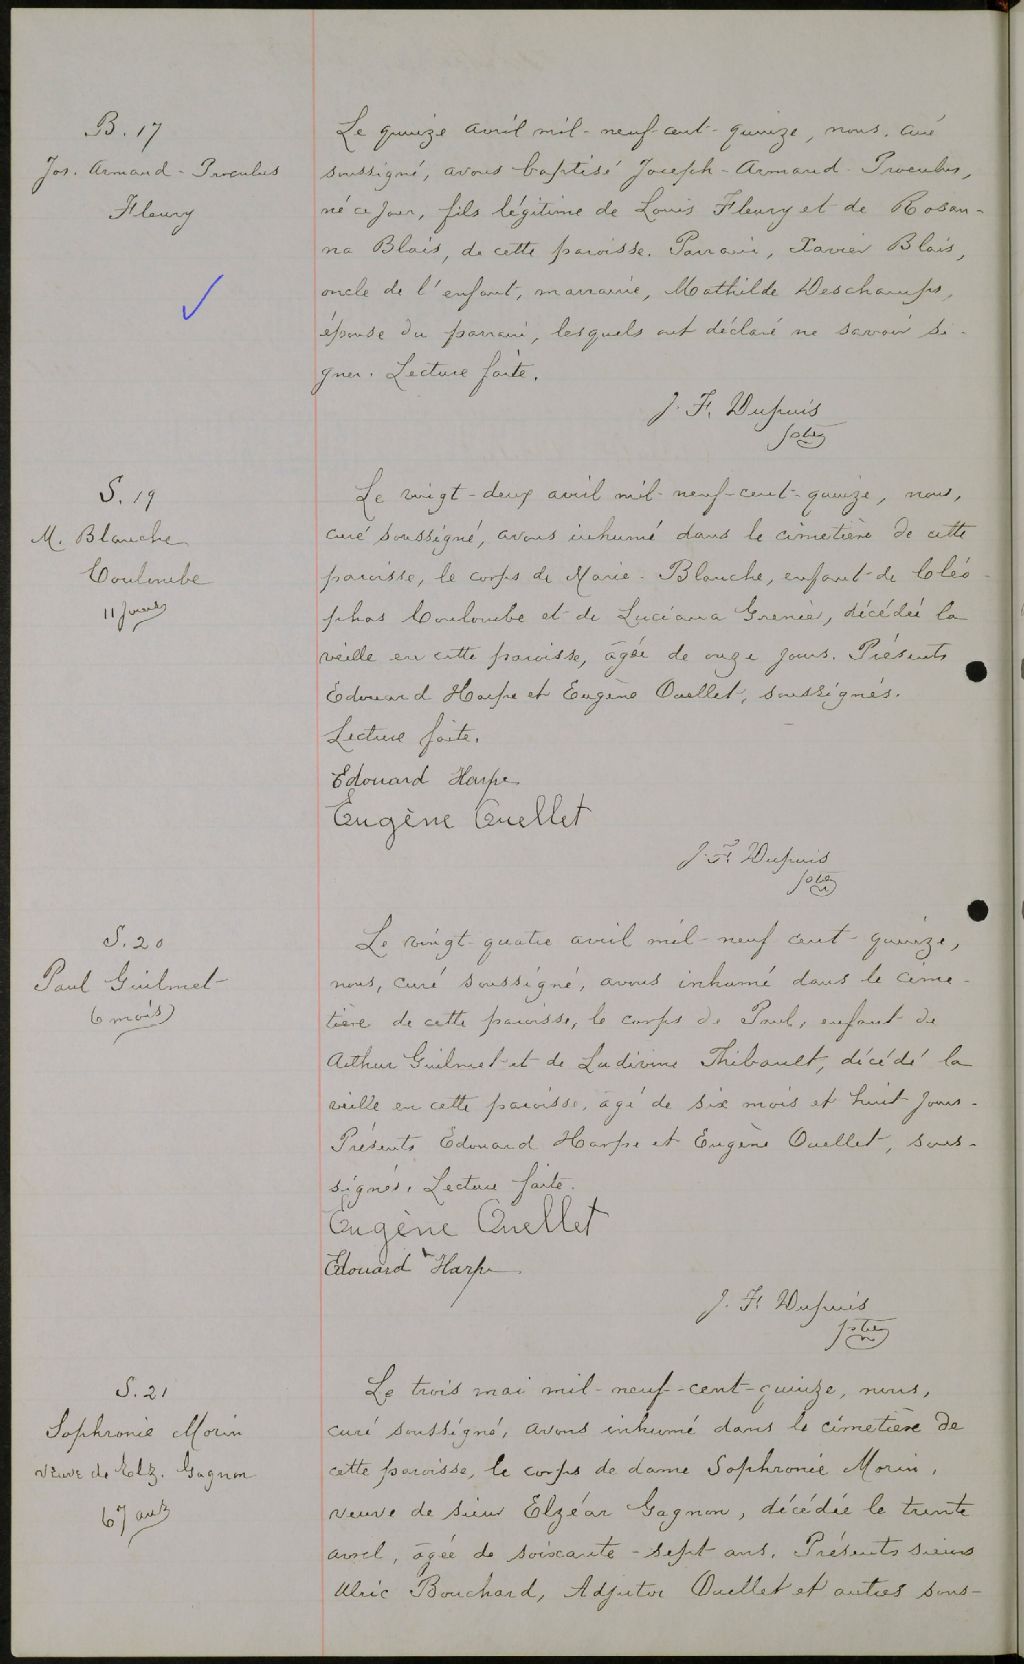 B. 17
Jos. Armand - Proculus
Fleury
Le quinze avril mil-neuf-cent-quinze, nous, curé
soussigné, avons baptisé Joseph-Armand-Proculus,
né ce jour, fils légitime de Louis Fleury et de Rosan-
na Blais, de cette paroisse. Parrain, Xavier Blais,
oncle de l'enfant, marraine, Mathilde Deschamps,
épouse du parrain, lesquels ont déclaré ne savoir si-
gner. Lecture faite.
J. F. Dupuis
ptre
S. 19
M. Blanche
Coulombe
11 jours
Le vingt-deux avril mil-neuf-cent-quinze, nous,
curé soussigné, avons inhumé dans le cimetière de cette
paroisse, le corps de Marie-Blanche, enfant de Cléo-
phas Coulombe et de Luciana Grenier, décédée la
veille en cette paroisse, âgée de onze jours. Présents
Edouard Harpe et Eugène Ouellet, soussignés.
Lecture faite.
Edouard Harpe
Eugène Ouellet
J. F. Dupuis
ptre
S. 20
Paul Guilmet
6 mois
Le vingt-quatre avril mil-neuf cent-quinze,
nous, curé soussigné, avons inhumé dans le cime-
tière de cette paroisse, le corps de Paul, enfant de
Arthur Guilmet et de Ludivine Thibault, décédé la
veille en cette paroisse, âgé de six mois et huit jours.
Présents Edouard Harpe et Eugène Ouellet, sous-
signés. Lecture faite.
Eugène Ouellet
Edouard Harpe
J. F. Dupuis
ptre
S. 21
Sophronie Morin
veuve de Elz. Gagnon
67 ans
Le trois mai mil-neuf-cent-quinze, nous,
curé soussigné, avons inhumé dans le cimetière de
cette paroisse, le corps de dame Sophronie Morin,
veuve de sieur Elzéar Gagnon, décédée le trente
avril, âgée de soixante-sept ans. Présents sieurs
Ulric Bouchard, Adjutor Ouellet et autres sous-